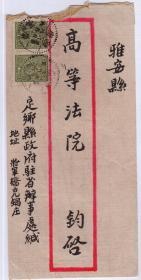 雅安縣
高等法院 鈞啓
定鄉縣政府駐省辦事處緘
地址 將軍橋